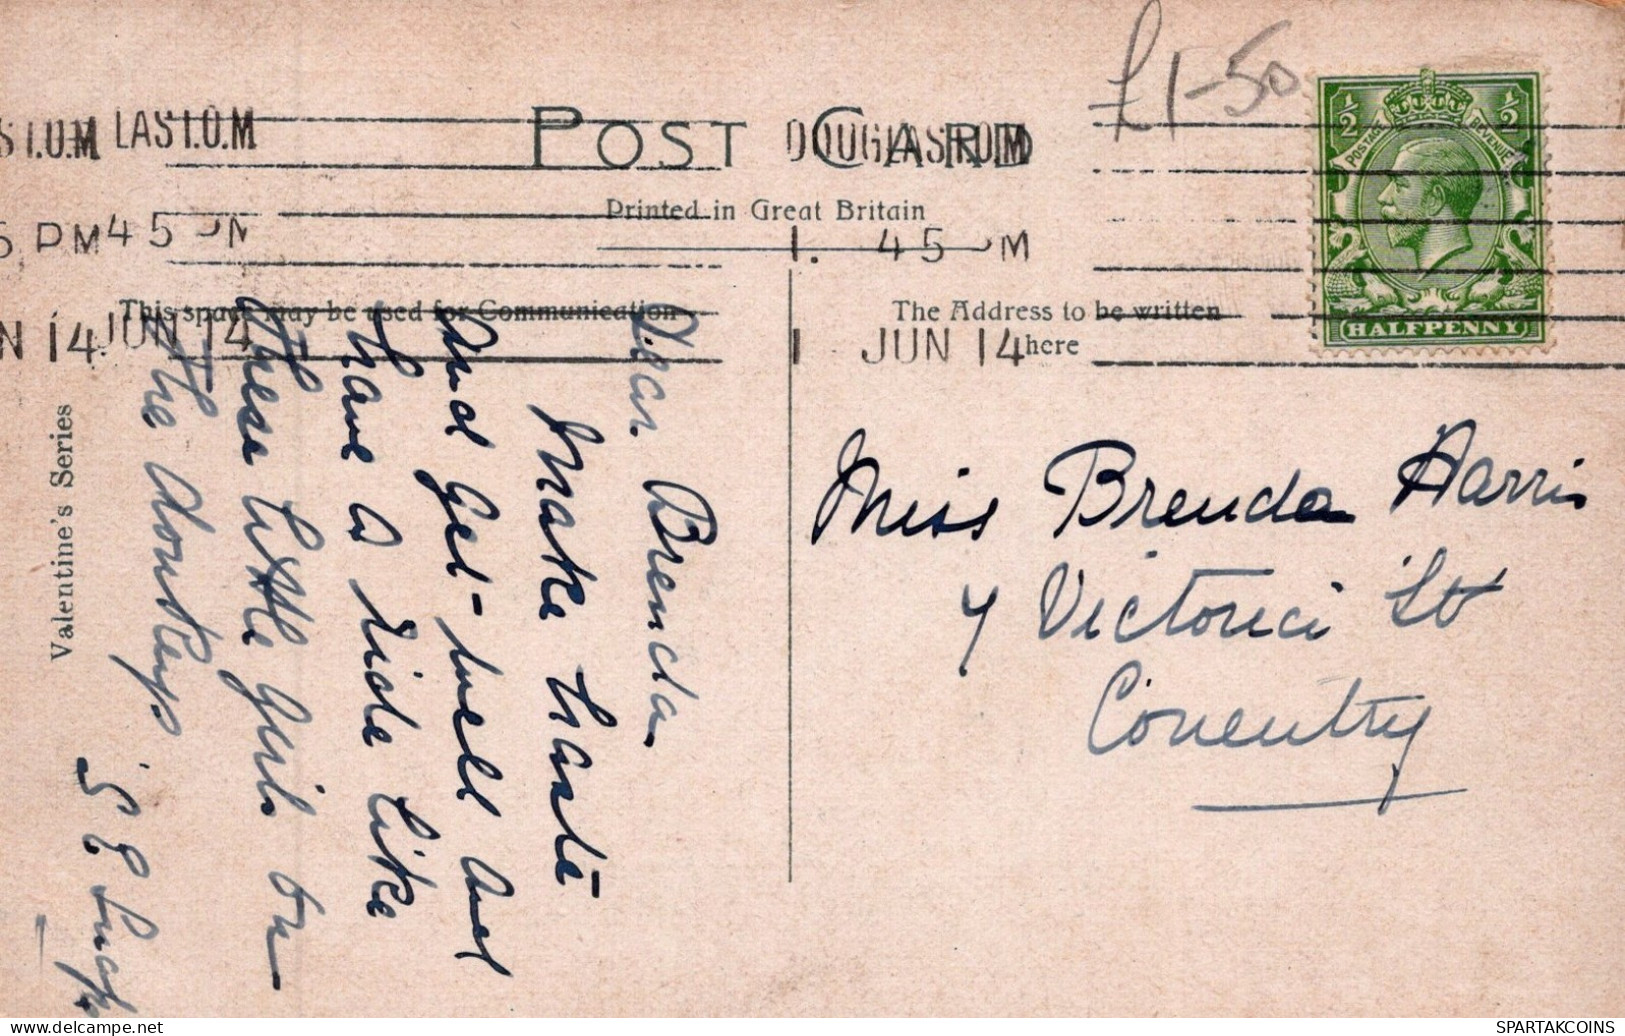 £1-50
POST CARD
DOUGLAS I.O.M
LAS I.O.M
S I.O.M
Printed in Great Britain
1. 45 PM
45 PM
5 PM
This space may be used for Communication
The Address to be written
here
JUN 14
JUN 14
N 14
½ ½
POSTAGE REVENUE
HALFPENNY
Valentine's Series
Dear Brenda
Make haste
and get well and
have a ride like
these little girls on
the donkeys
S E
Miss Brenda Harris
Victoria St
Coventry
SPARTAKCOINS
www.delcampe.net